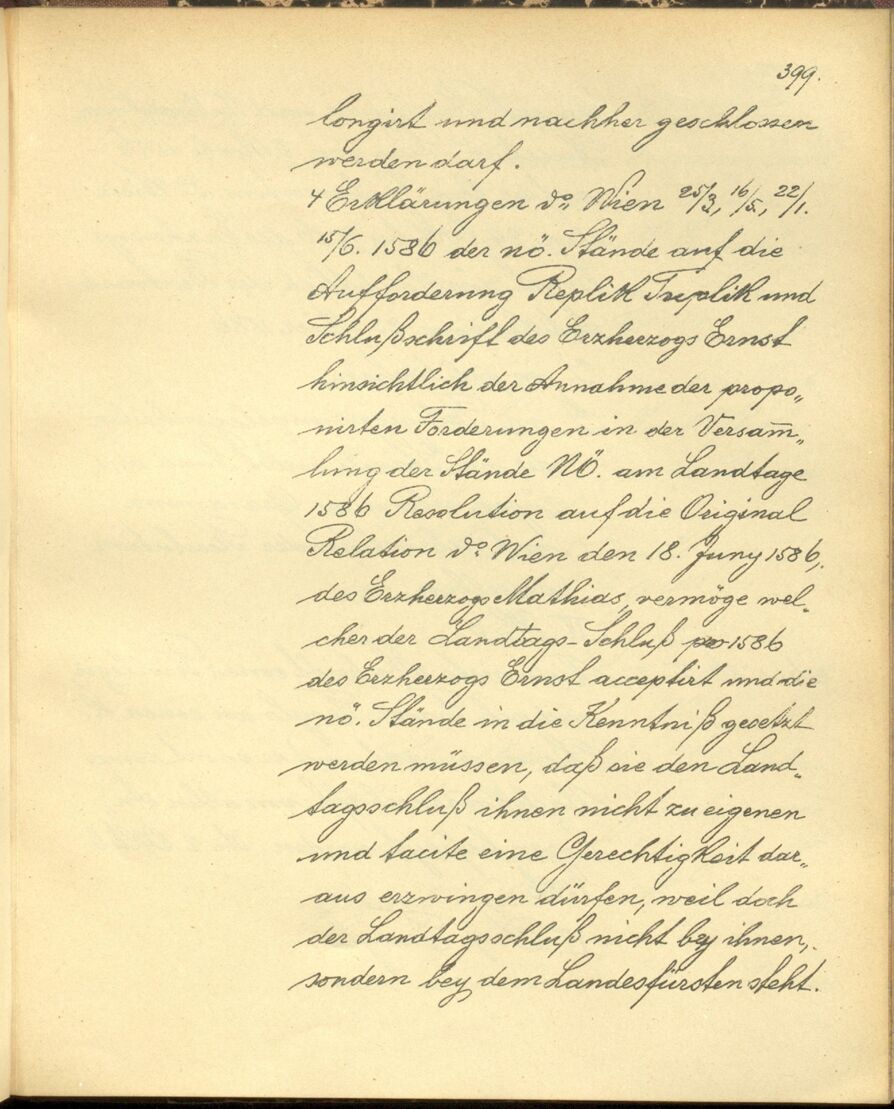 399.
longirt und nachher geschlossen
werden darf.
4 Erklärungen do Wien 25/3, 16/5, 22/1.
15/6. 1586 der nö. Stände auf die
Aufforderung Replik Triplik und
Schlußschrift des Erzherzogs Ernst
hinsichtlich der Annahme der propo„
nirten Forderungen in der Versam̅„
lung der Stände NÖ. am Landtage
1586 Resolution auf die Original
Relation do Wien den 18. Juny 1586,
des Erzherzogs Mathias, vermöge wel„
cher der Landtags-Schluß pro 1586
des Erzherzogs Ernst acceptirt und die
nö. Stände in die Kenntniß gesetzt
werden müssen, daß sie den Land„
tagsschluß ihnen nicht zu eigenen
und tacite eine Gerechtigkeit dar„
aus erzwingen dürfen, weil doch
der Landtagsschluß nicht bey ihnen,
sondern bey dem Landesfürsten steht.